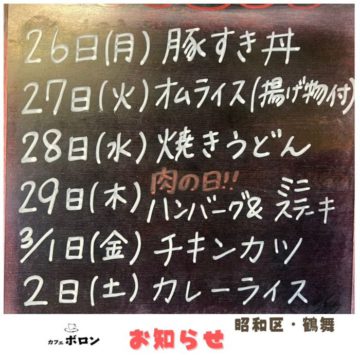 26日(月) 豚すき丼
27日(火) オムライス(揚げ物付)
28日(水) 焼きうどん
肉の日!!
29日(木) ハンバーグ& ミニステーキ
3/1日(金) チキンカツ
2日(土) カレーライス
昭和区・鶴舞
カフェ ボロン
お知らせ